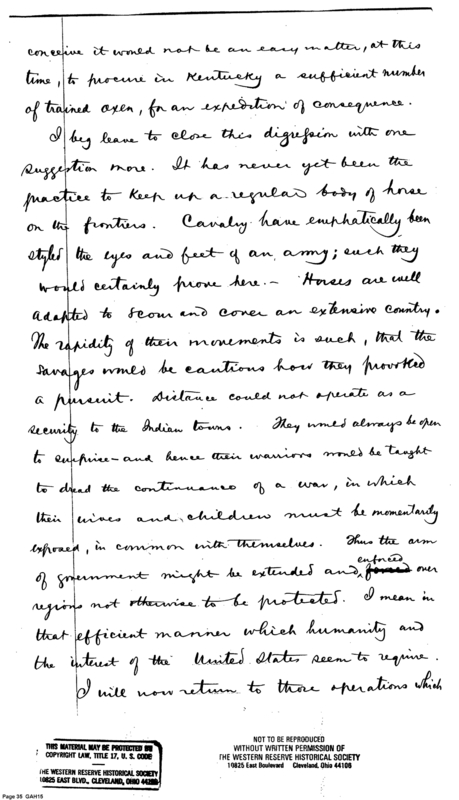 conceive it would not be an easy matter, at this
time, to procure in Kentucky a sufficient number
of trained oxen, for an expedition of consequence.
I beg leave to close this digression with one
suggestion more. It has never yet been the
practice to keep up a regular body of horse
on the frontiers. Cavalry have emphatically been
styled the eyes and feet of an army; such they
would certainly prove here. – Horses are well
adapted to scour and cover an extensive country.
The rapidity of their movements is such, that the
savages would be cautious how they provoked
a pursuit. Distance could not operate as a
security to the Indian towns. They would always be open
to surprise – and hence their warriors would be taught
to dread the continuance of a war, in which
their wives and children must be momentarily
exposed, in common with themselves. Thus the arm
of government might be extended and enforced over
regions not otherwise to be protected. I mean in
that efficient manner which humanity and
the interest of the United States seem to require.
I will now return to those operations which
THIS MATERIAL MAY BE PROTECTED BY
COPYRIGHT LAW, TITLE 17, U. S. CODE
THE WESTERN RESERVE HISTORICAL SOCIETY
10825 EAST BLVD., CLEVELAND, OHIO 44106
NOT TO BE REPRODUCED
WITHOUT WRITTEN PERMISSION OF
THE WESTERN RESERVE HISTORICAL SOCIETY
10825 East Boulevard Cleveland, Ohio 44106
Page 35 QAH15